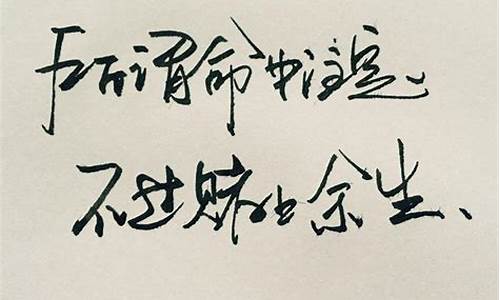 所谓命中注定、
不过赌上余生、